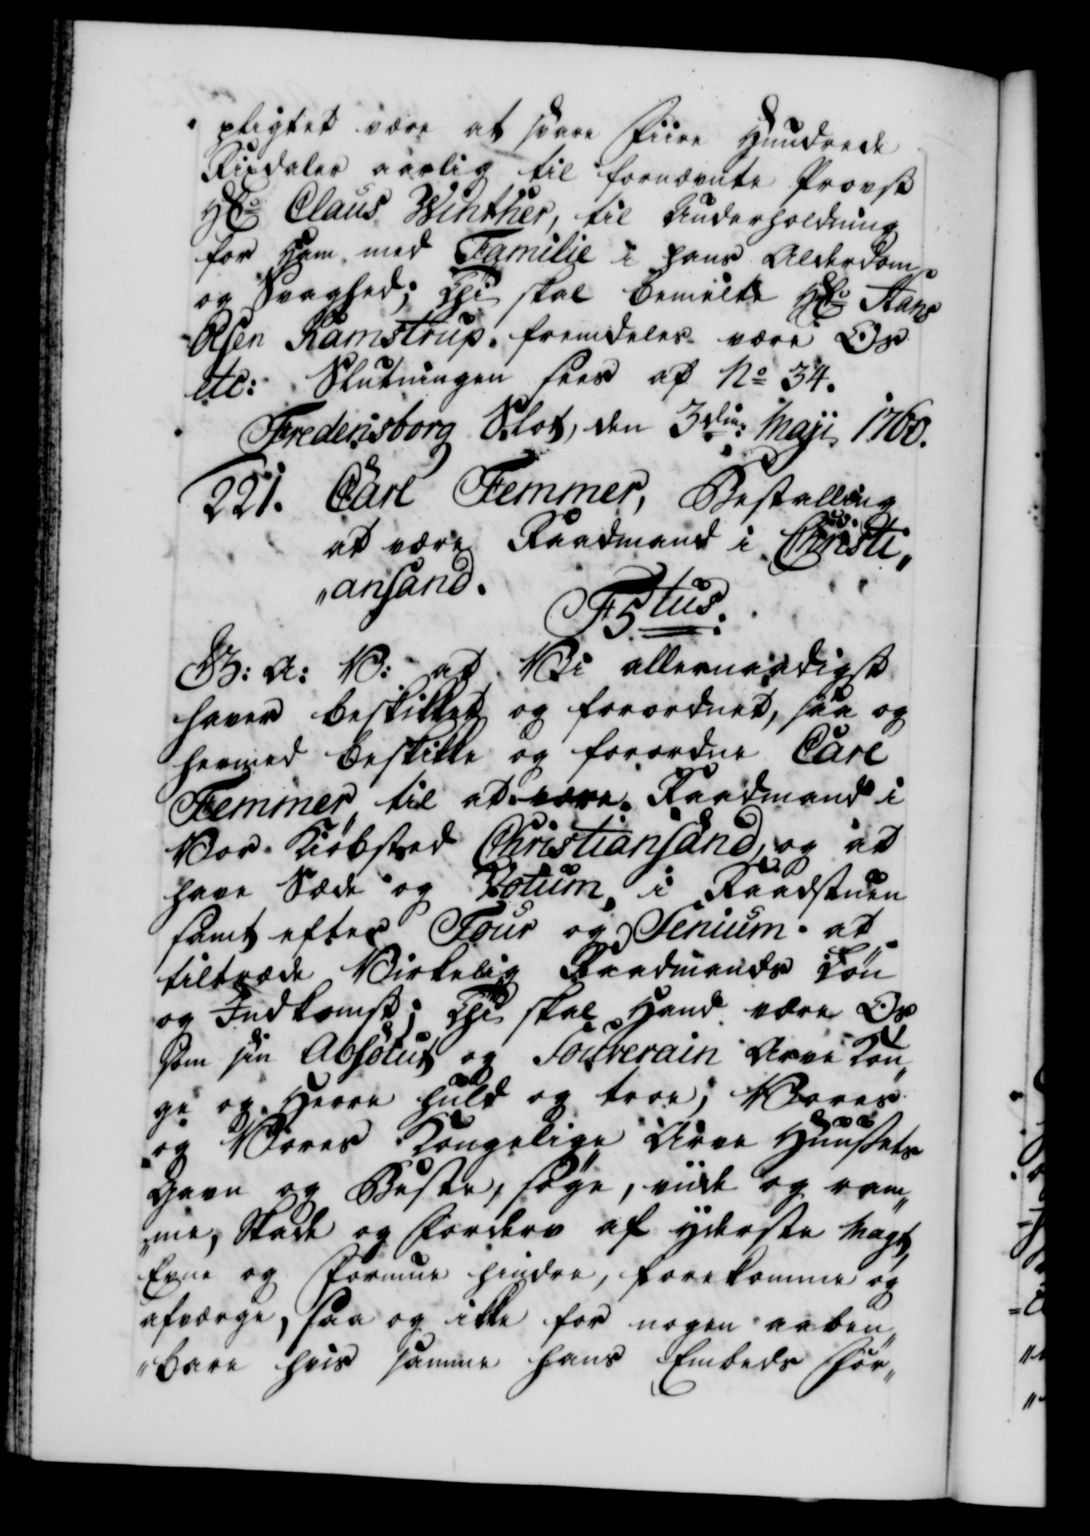 pligtet være at svare Fiire Hundrede
Rixdaler aarlig til fornævnte Provst
Hr: Claus Winther, til Underholdning
for Ham med Familie i hans Alderdom
og Svaghed; Thi skal bemelte Hr: Hans
Olsen Ramstrup fremdeles være Os
etc: Slutningen sees af No 34.
Fredensborg Slot, den 3die Maji 1760.
221. Carl Femmer, Bestalling
at være Raadmand i Christi„
„ansand.
F5tus:
G: A: V: at Vi allernaadigst
haver beskikket og forordnet, saa og
hermed beskikke og forordne Carl
Femmer til at være Raadmand i
Vor Kiøbsted Christiansand, og at
have Sæde og Votum i Raadstuen
samt efter Tour og Senium at
tiltræde Virkelig Raadmands Løn
og Indkomst; Thi skal Hand være Os
som sin Absolut og Souverain Arve Kon„
ge og Herre huld og troe; Vores
og Vores Kongelige Arve Huusets
Gavn og Beste, søge, viide og ram„
„me, Skade og Forderv af yderste Magt,
Evne og Formue hindre, forekomme og
afværge, saa og ikke for nogen aaben„
„bare hvis samme hans Embeds For„